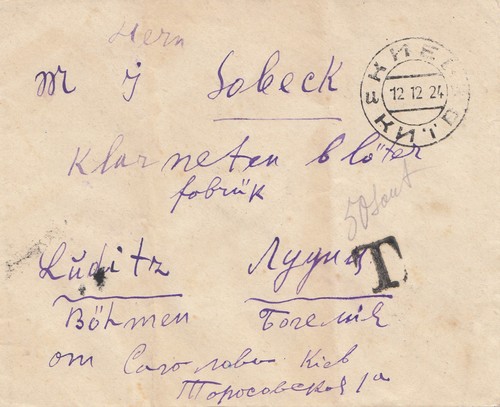 Herrn
M J Sobeck
КИЕВ
12 12 24
КИЇВ
Klarneten blöter
fobrük
50 cent
T
Luditz Лудиц
Böhmen Богемія
от Київ
Торосовская 1а